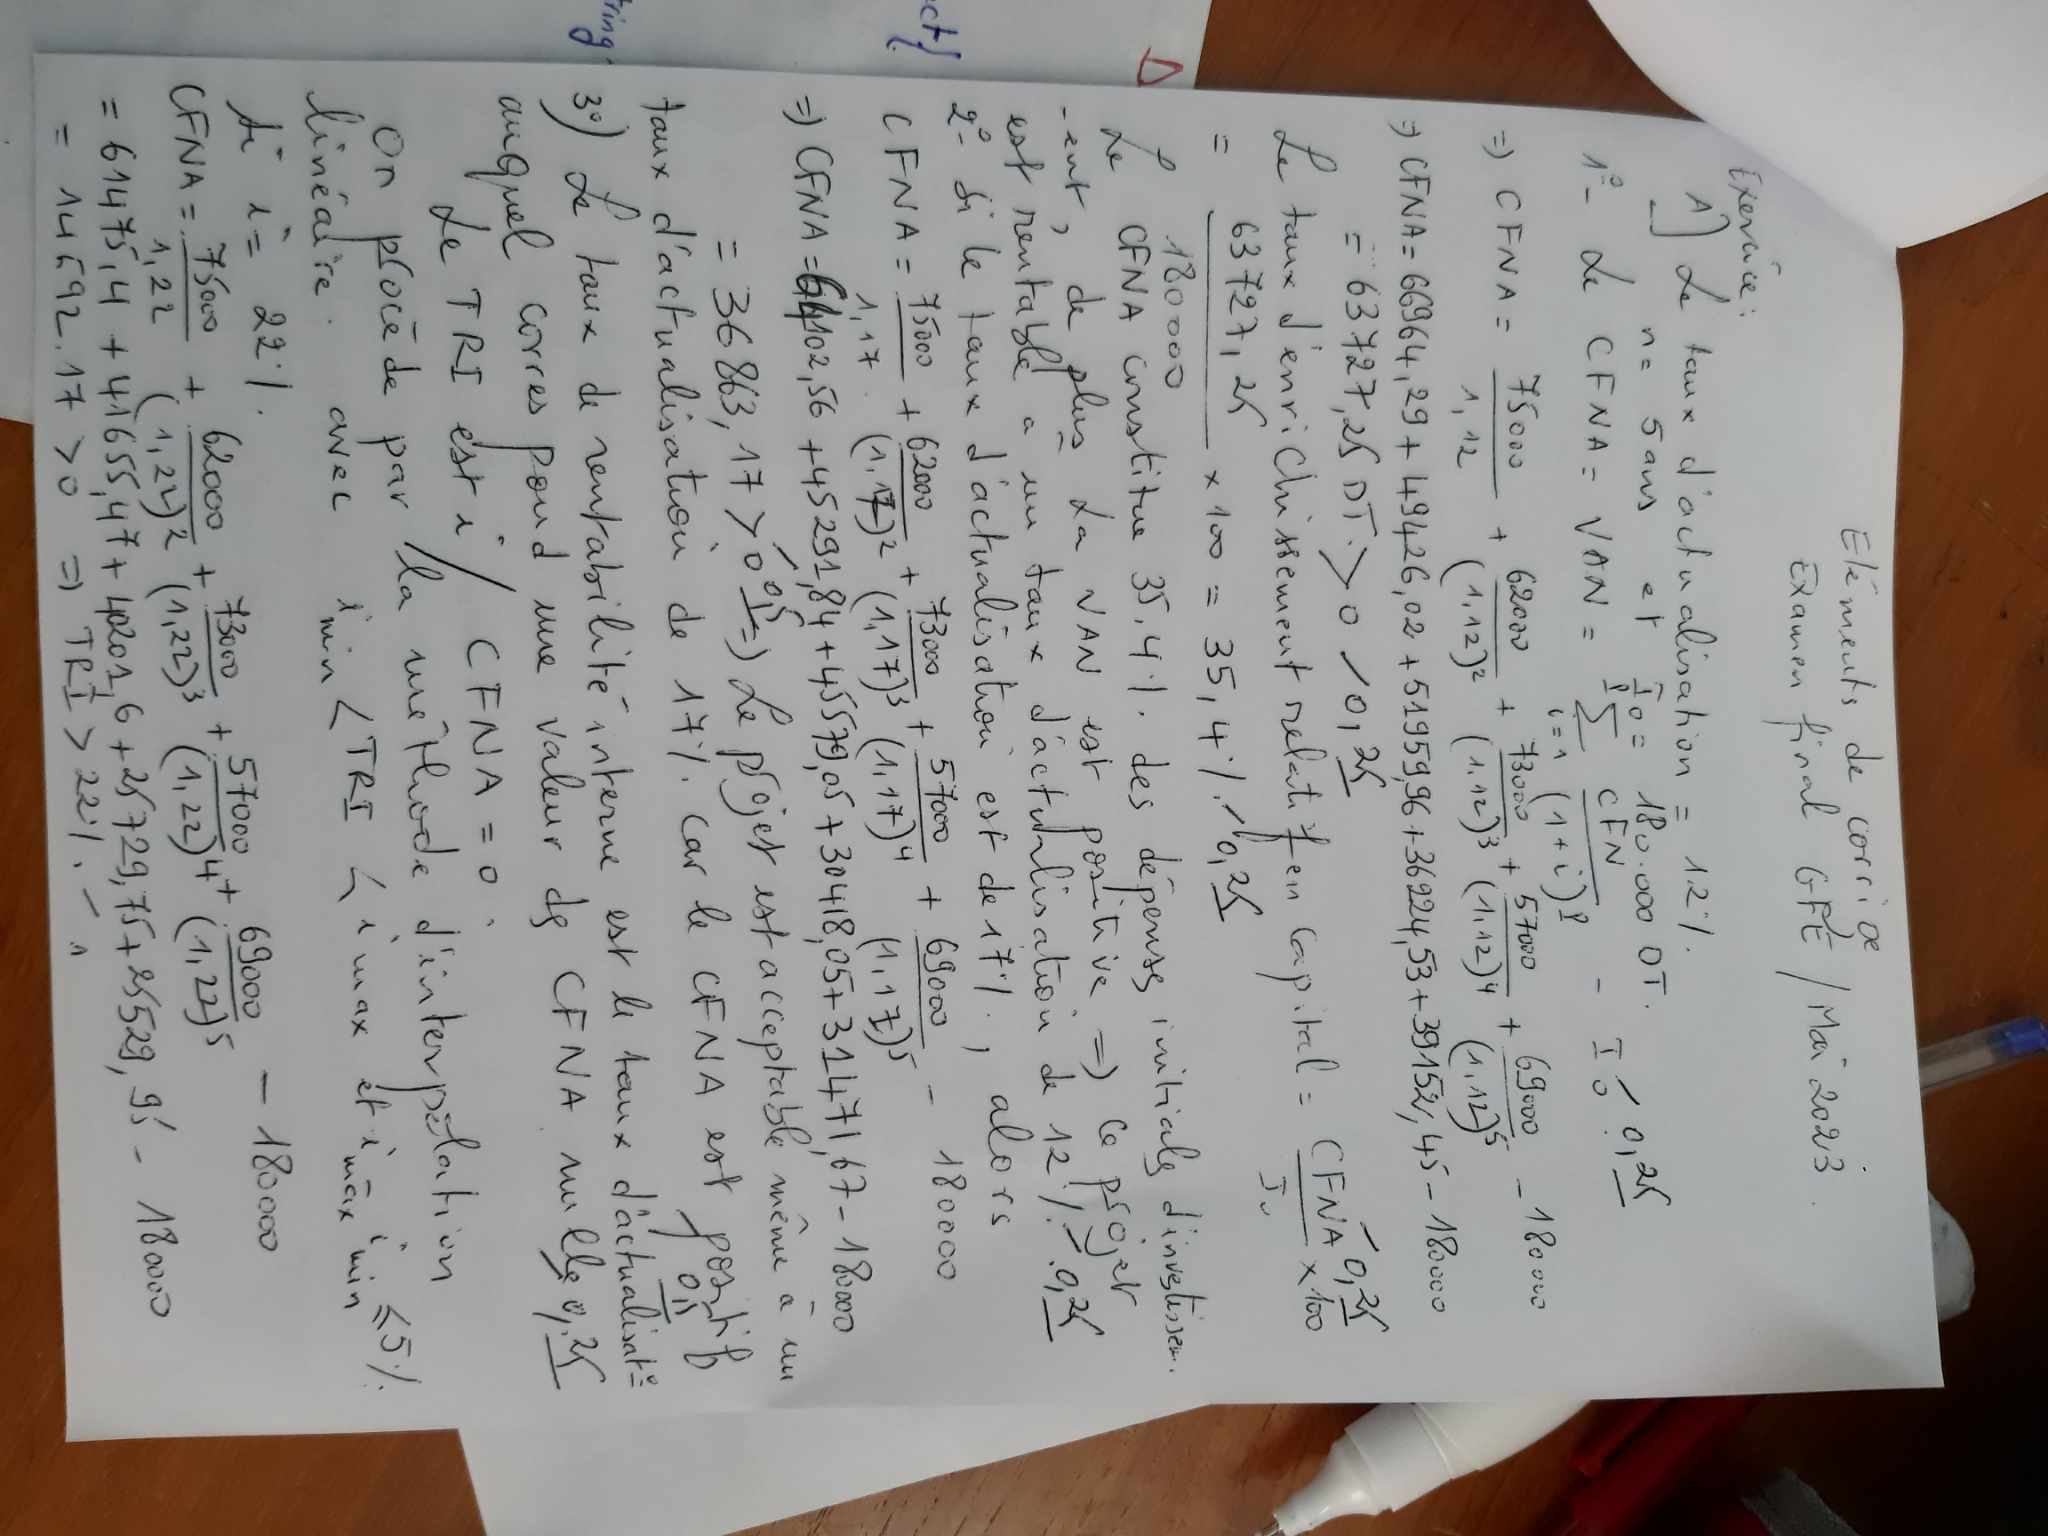 Eléments de corrigé
Examen final GFE / Mai 2023.
Exercice :
A] Le taux d'actualisation = 12%.
n = 5 ans et I0 = 180.000 DT.
1°- Le CFNA = VAN = P∑i=1 CFN/(1+i)^P - I0 0,25
=> CFNA = 75000/1,12 + 62000/(1,12)^2 + 73000/(1,12)^3 + 57000/(1,12)^4 + 69000/(1,12)^5 - 180000
=> CFNA = 66964,29 + 49426,02 + 51959,96 + 36224,53 + 39152,45 - 180000
= 63727,25 DT. > 0 0,25
Le taux d'enrichissement relatif en capital = CFNA/I0 × 100 0,25
= 63727,25/180000 × 100 = 35,4%. 0,25
Le CFNA constitue 35,4%. des dépenses initiales d'investissem-
-ent, de plus la VAN est positive => ce projet
est rentable à un taux d'actualisation de 12%. 0,25
2°- Si le taux d'actualisation est de 17%., alors
CFNA = 75000/1,17 + 62000/(1,17)^2 + 73000/(1,17)^3 + 57000/(1,17)^4 + 69000/(1,17)^5 - 180000
=> CFNA = 64102,56 + 45291,84 + 45579,05 + 30418,05 + 31471,67 - 180000
= 36863,17 > 0 0,5 => Le projet est acceptable même à un
taux d'actualisation de 17%. car le CFNA est positif
0,5
3°) Le taux de rentabilité interne est le taux d'actualisat°
auquel correspond une valeur des CFNA nulle 0,25
Le TRI est i / CFNA = 0.
On procède par la méthode d'interpolation
linéaire. avec i min < TRI < i max et i max - i min ≤ 5%.
Si i = 22%.
CFNA = 75000/1,22 + 62000/(1,22)^2 + 73000/(1,22)^3 + 57000/(1,22)^4 + 69000/(1,22)^5 - 180000
= 61475,4 + 41655,47 + 40201,6 + 25729,75 + 25529,95 - 180000
= 14592.17 > 0 => TRI > 22%. - 1
D
ect{
tring